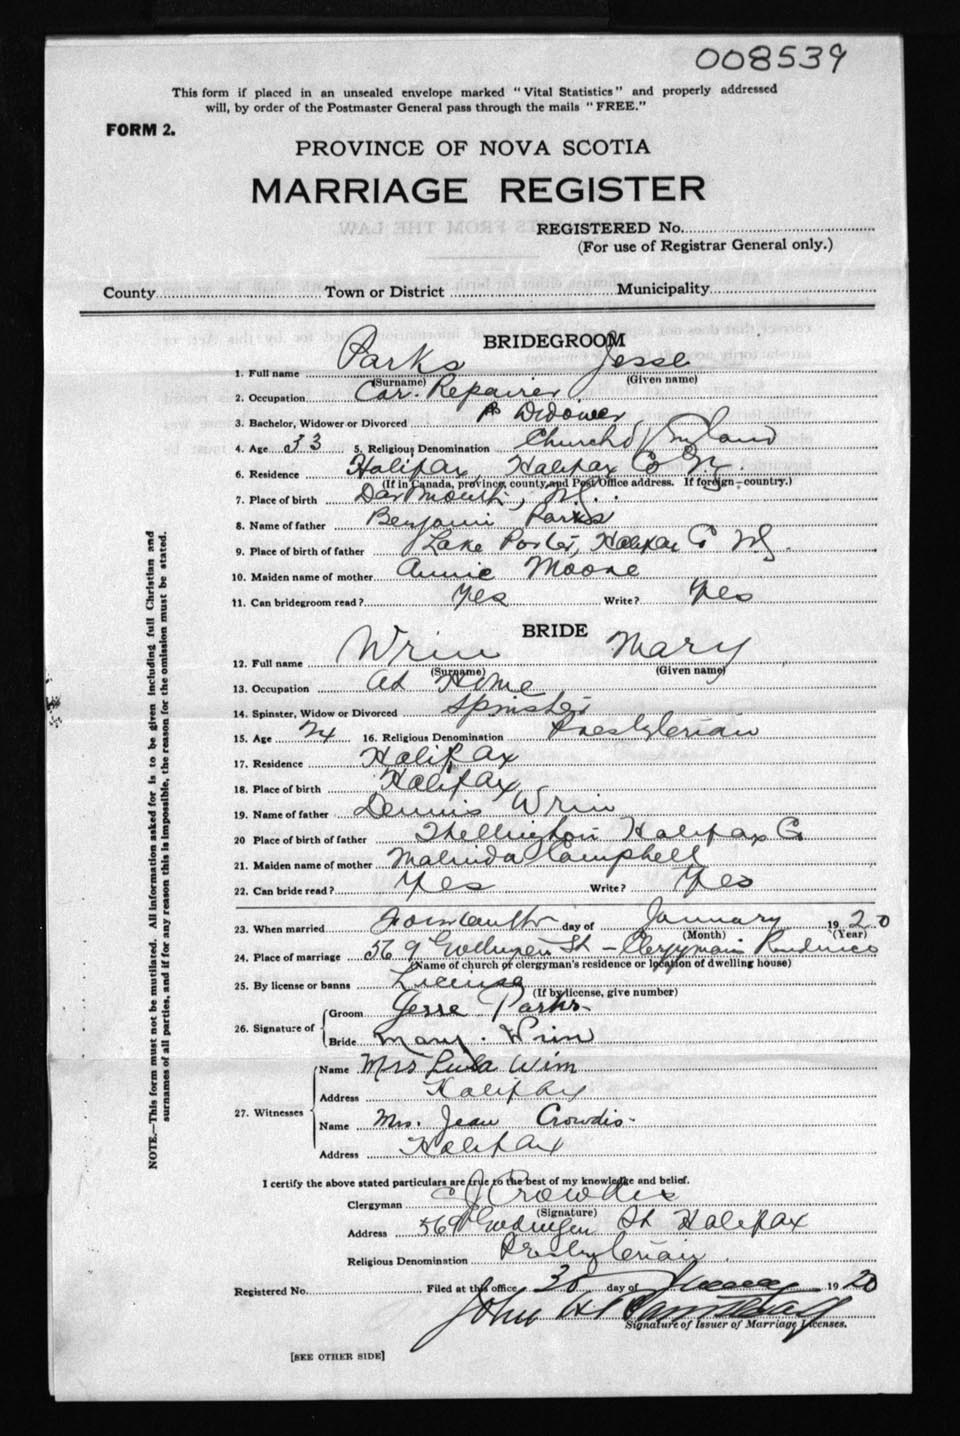 008539
This form if placed in an unsealed envelope marked "Vital Statistics" and properly addressed
will, by order of the Postmaster General pass through the mails "FREE."
FORM 2.
PROVINCE OF NOVA SCOTIA
MARRIAGE REGISTER
REGISTERED No.
(For use of Registrar General only.)
County Town or District Municipality
BRIDEGROOM
1. Full name Parks Jesse
(Surname) (Given name)
2. Occupation Car Repairer
3. Bachelor, Widower or Divorced A Widower
4. Age 33 5. Religious Denomination Church of England
6. Residence Halifax, Halifax Co NS.
(If in Canada, province, county and Post Office address. If foreign—country.)
7. Place of birth Dartmouth, NS.
8. Name of father Benjamin Parks
9. Place of birth of father Lake Porter, Halifax Co NS.
10. Maiden name of mother Annie Moore
11. Can bridegroom read? Yes Write? Yes
BRIDE
12. Full name Wrin Mary
(Surname) (Given name)
13. Occupation At Home
14. Spinster, Widow or Divorced Spinster
15. Age 24 16. Religious Denomination Presbyterian
17. Residence Halifax
18. Place of birth Halifax
19. Name of father Dennis Wrin
20 Place of birth of father Halifax Co
21. Maiden name of mother Malinda Campbell
22. Can bride read? Yes Write? Yes
23. When married Fourteenth day of January 1920
(Month) (Year)
24. Place of marriage 569 St – Clergyman's Residence
(Name of church or clergyman's residence or location of dwelling house)
25. By license or banns License
(If by license, give number)
26. Signature of Groom Jesse Parks
Bride Mary. Wrin
27. Witnesses Name Mrs Lula Wim
Address Halifax
Name Mrs. Jean Crowdis
Address Halifax
I certify the above stated particulars are true to the best of my knowledge and belief.
Clergyman C J Crowdis
(Signature)
Address 569 St Halifax
Religious Denomination Presbyterian.
Registered No. Filed at this office 30 day of 1920
John H
Signature of Issuer of Marriage Licenses.
[SEE OTHER SIDE]
NOTE.—This form must not be mutilated. All information asked for is to be given including full Christian and
surnames of all parties, and if for any reason this is impossible, the reason for the omission must be stated.